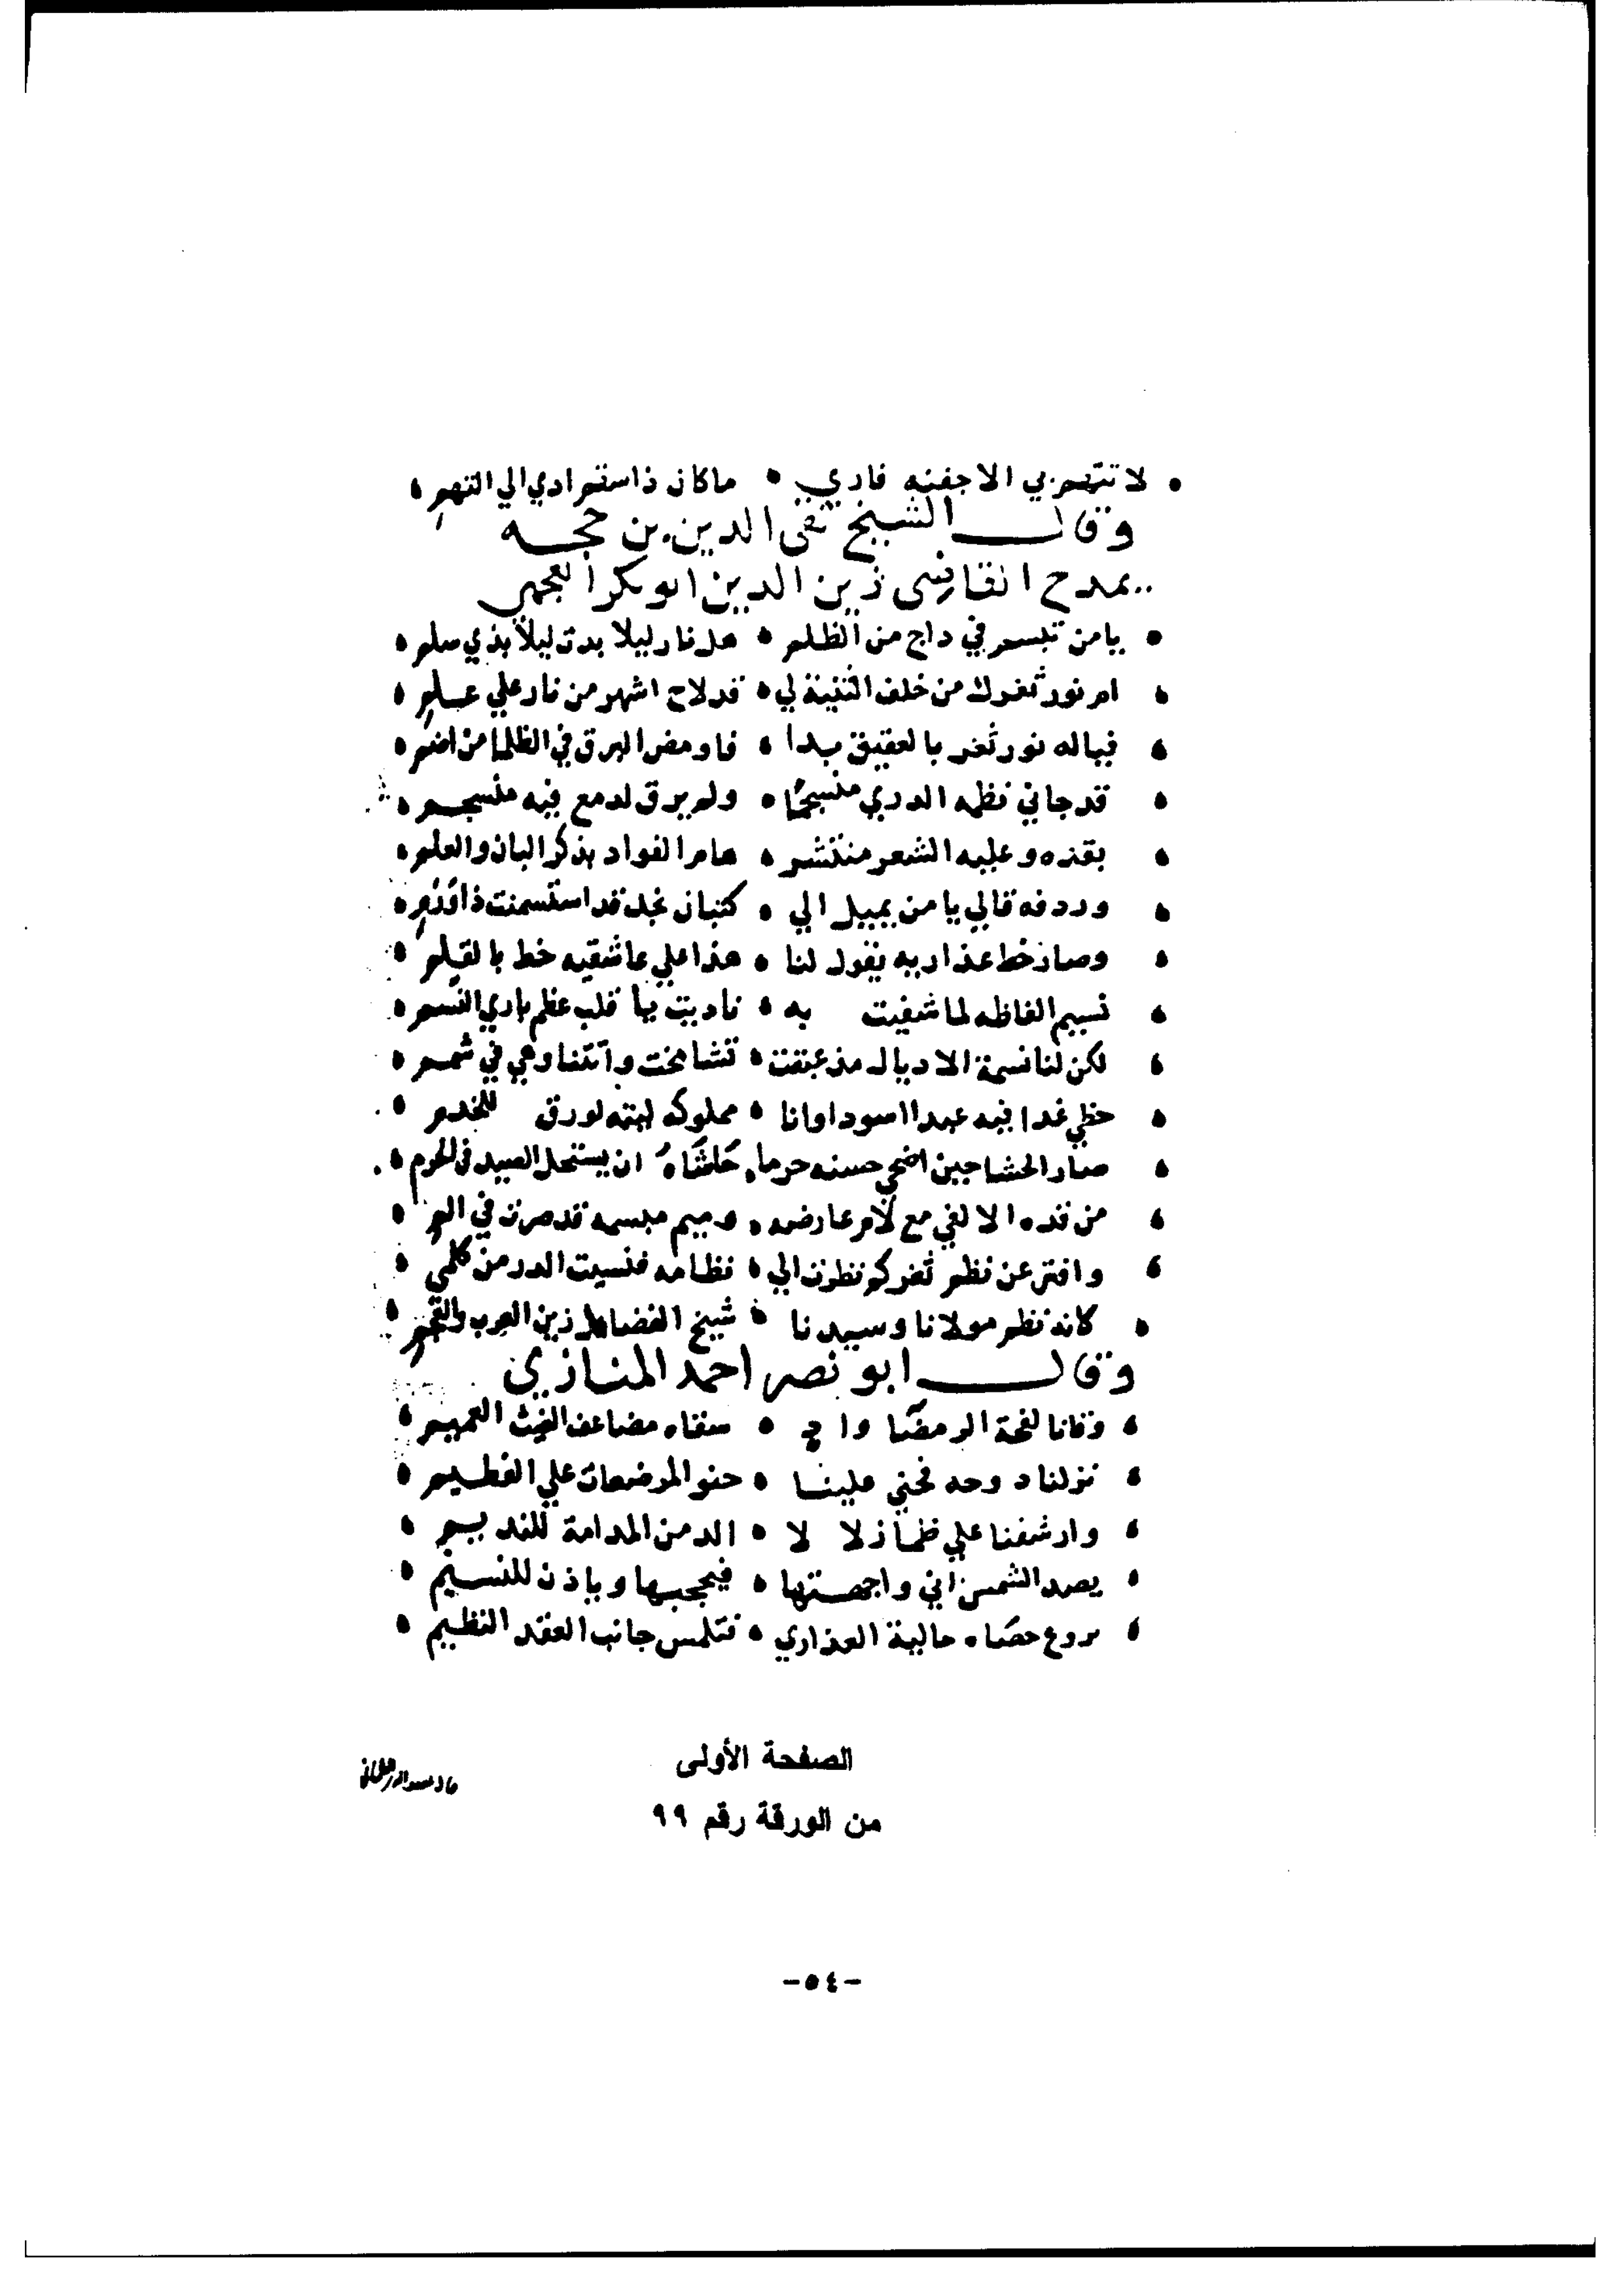 لا تتهمني الا جفنه فاري • ماكان ذا سقم ادي الي التهم
وقال الشيخ تقى الدين بن حجه
يمدح القاضى زين الدين ابو بكر العجمي
يا من تبسم في داج من الظلم • هل نار ليلا بدت ليلا بذي سلم
ام نور ثغرك من خلف الثنية لي • قد لاح اشهر من نار علي علم
فياله نور ثغر بالعقيق بدا • فاومض البرق في الظلما من اضم
قد جاني نظمه الدري منسجمًا • ولم يرق لدمع فيه منسجم
بقده وعليه الشعر منتشر • هام الفواد بذكر البان والعلم
وردفه قال لي يا من يميل الي • كثبان نجد قد استسمنت ذا ورم
وصار خط عذاريه يقول لنا • هذا علي عاشقيه خط بالقلم
نسيم الفاظه لما شفيت به • ناديت يا قلب عظم باري النسم
لكن لنا نسمة الاديال مذ عبقت • تشامخت واتتنا وهي في شمم
حظي غدا فيه عبدا اسودا وانا • مملوكه ليته لو رق للخدم
صار الحشا حين اضحي حسنه حرما • حاشاه ان يستحل الصيد في الحرم
من قده الالفي مع لام عارضه • وميم مبسمه قد صرت في الم
وافتر عن نظم ثغر كم نظرت الي • نظامه فنسيت الدر من كلمي
كانه نظم مولانا وسيدنا • شيخ الفضايل زين العرب والعجم
وقال ابو نصر احمد المنازي
وقانا لفحة الرمضا واد • سقاه مضاعف الغيث العميم
نزلنا دوحه فحني علينا • حنو المرضعات علي الفطيم
وارشفنا علي ظما زلا لا • الد من المدامة للنديم
يصد الشمس اني واجهتها • فيحجبها وياذن للنسيم
يروع حصاه حالية العذاري • فتلمس جانب العقد النظيم
الصفحة الأولى
من الورقة رقم ٩٩
-٥٤-